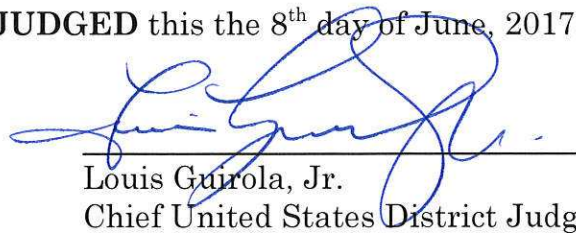 JUDGED this the 8th day of June, 2017
Louis Guirola, Jr.
Chief United States District Judg